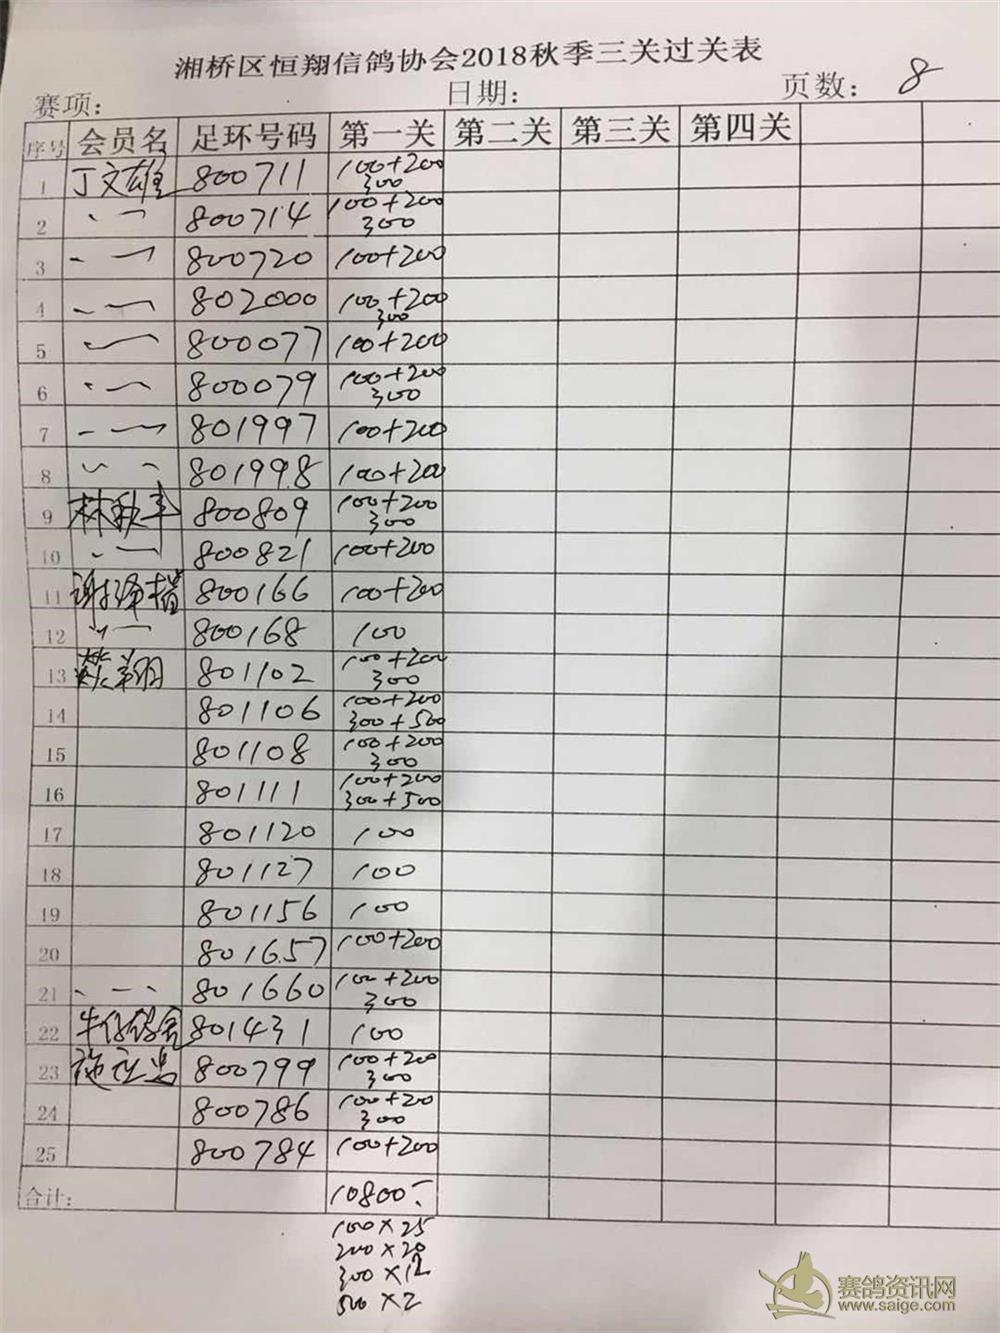 湘桥区恒翔信鸽协会2018秋季三关过关表
赛项: 日期: 页数: 8
序号 会员名 足环号码 第一关 第二关 第三关 第四关
1 丁文雄 800711 100+200 300
2 〃 800714 100+200 300
3 〃 800720 100+200
4 〃 802000 100+200 300
5 〃 800077 100+200
6 〃 800079 100+200 300
7 〃 801997 100+200
8 〃 801998 100+200
9 林秋丰 800809 100+200 300
10 〃 800821 100+200
11 谢泽楷 800166 100+200
12 〃 800168 100
13 蔡翔 801102 100+200 300
14 801106 100+200 300+500
15 801108 100+200 300
16 801111 100+200 300+500
17 801120 100
18 801127 100
19 801156 100
20 801657 100+200
21 〃 801660 100+200 300
22 牛仔鸽舍 801431 100
23 800799 100+200 300
24 800786 100+200 300
25 800784 100+200
合计: 10800-
100×25
200×20
300×12
500×2
赛鸽资讯网
www.saige.com